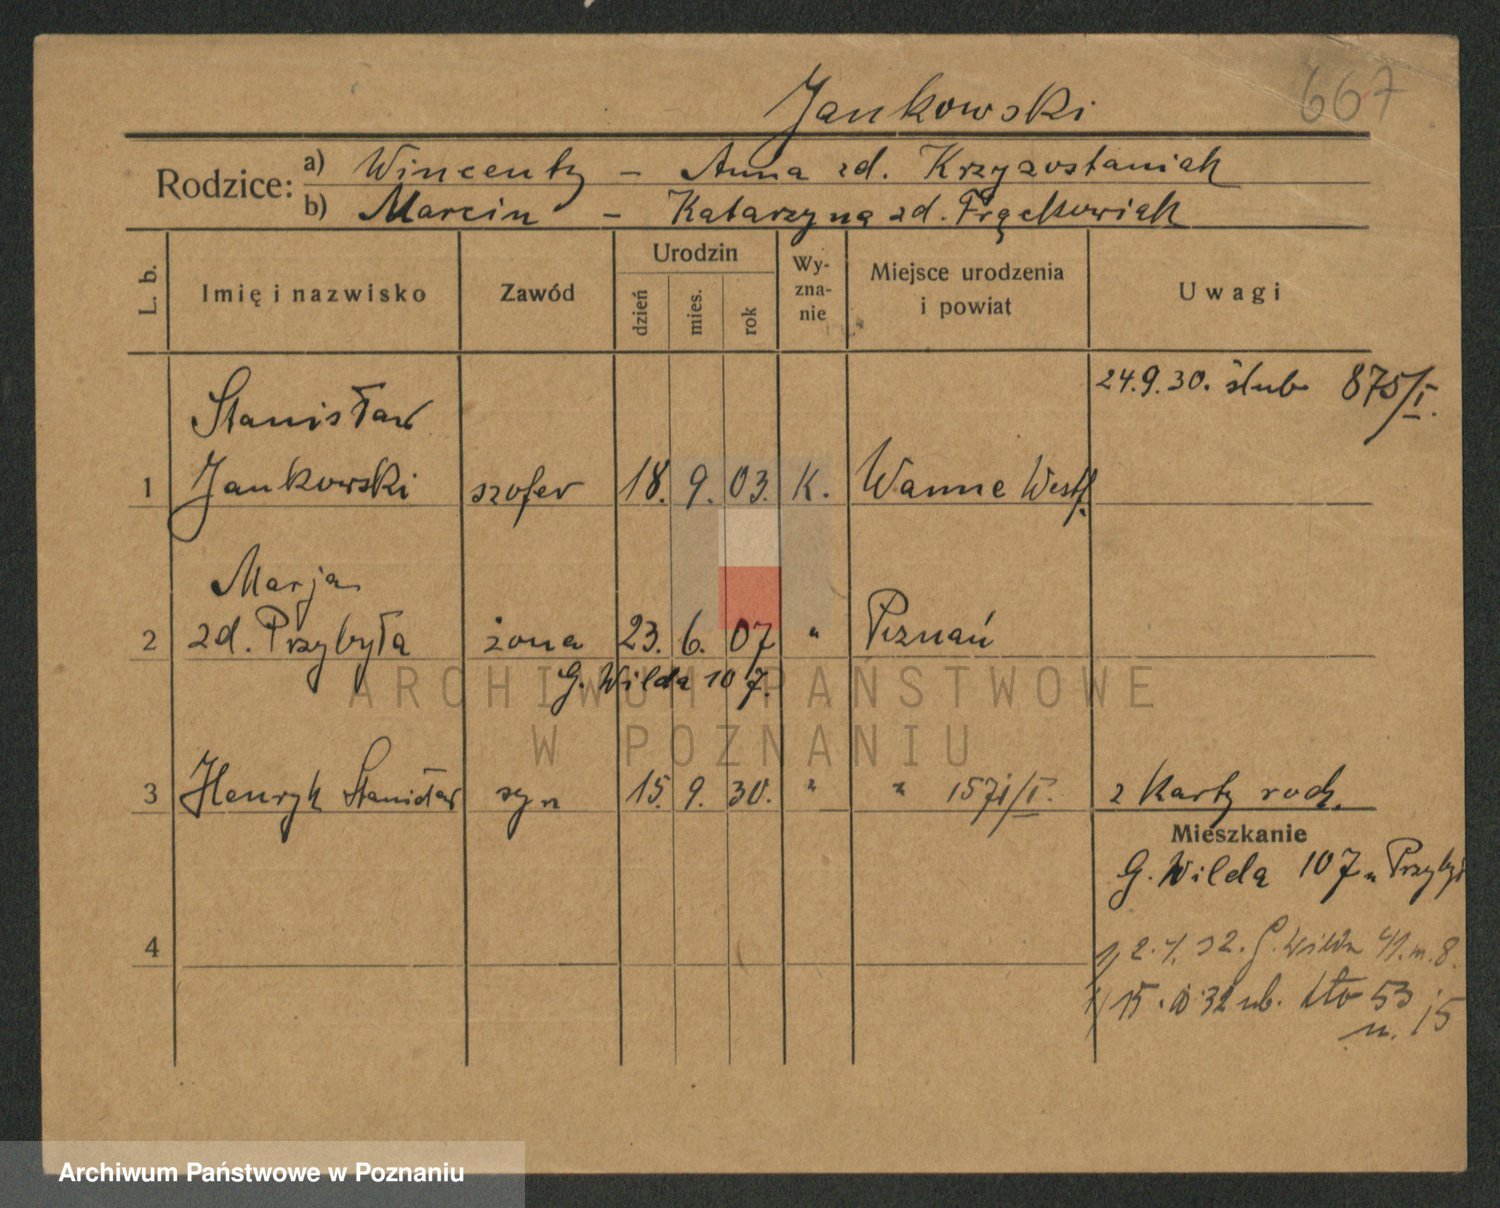 Jankowski 667
Rodzice: a) Wincenty – Anna zd. Krzyżostaniak
b) Marcin – Katarzyna zd. Frąckowiak
L. b. Imię i nazwisko Zawód Urodzin dzień mies. rok Wy-zna-nie Miejsce urodzenia i powiat Uwagi
24.9.30. ślub 875/I.
Stanisław
1 Jankowski szofer 18. 9. 03. K. Wanne Westf.
Marja
2 zd. Przybyła żona 23. 6. 07 " Poznań
G. Wilda 107.
3 Henryk Stanisław syn 15. 9. 30. " " 1571/I. z Karty rodz.
Mieszkanie
G. Wilda 107 u Przybył
4
2. 4. 32. G. Wilda 41. m. 8.
15. 32 53
m. 15
ARCHIWUM PAŃSTWOWE
W POZNANIU
Archiwum Państwowe w Poznaniu